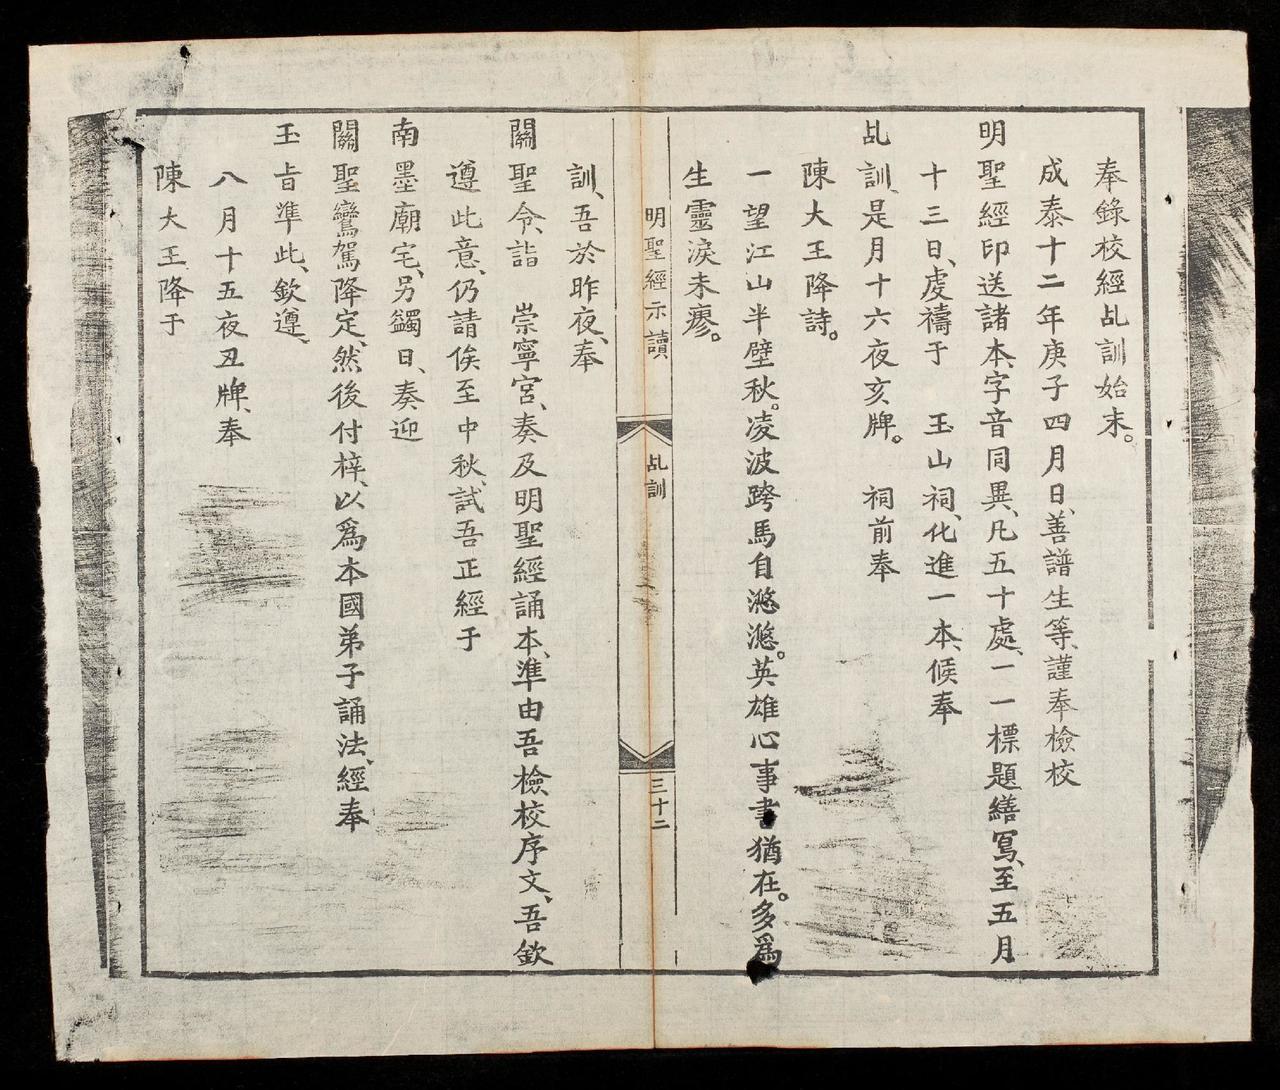 奉錄校經乩訓始末。
成泰十二年庚子四月日、善譜生等、謹奉檢校
明聖經印送諸本、字音同異、凡五十處、一一標題繕寫、至五月
十三日、虔禱于　玉山祠、化進一本、候奉
乩訓、是月十六夜亥牌。　祠前奉
陳大王降詩。
一望江山半壁秋。凌波跨馬自滺滺。英雄心事書猶在。多爲
生靈淚未瘳。
明聖經示讀
乩訓
三十二
訓、吾於昨夜、奉
關聖令、詣　崇寧宮、奏及明聖經誦本、準由吾檢校序文、吾欽
遵此意、仍請俟至中秋、試吾正經于
南墨廟宅、另蠲日、奏迎
關聖鸞駕降定、然後付梓、以爲本國弟子誦法、經奉
玉旨準此、欽遵、
八月十五夜丑牌、奉
陳大王降于